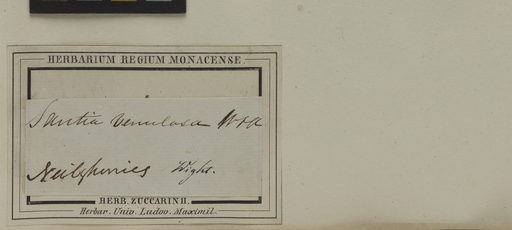 HERBARIUM REGIUM MONACENSE.
Santia venulosa W&A
Neilgherries Wight.
HERB. ZUCCARINII.
Herbar. Univ. Ludov. Maximil.